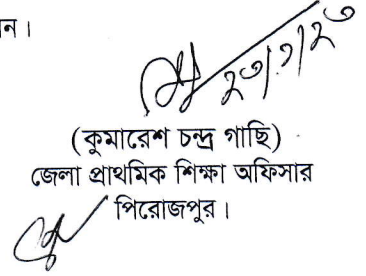 ন।
২৩/১/২৩
(কুমারেশ চন্দ্র গাছি)
জেলা প্রাথমিক শিক্ষা অফিসার
পিরোজপুর।